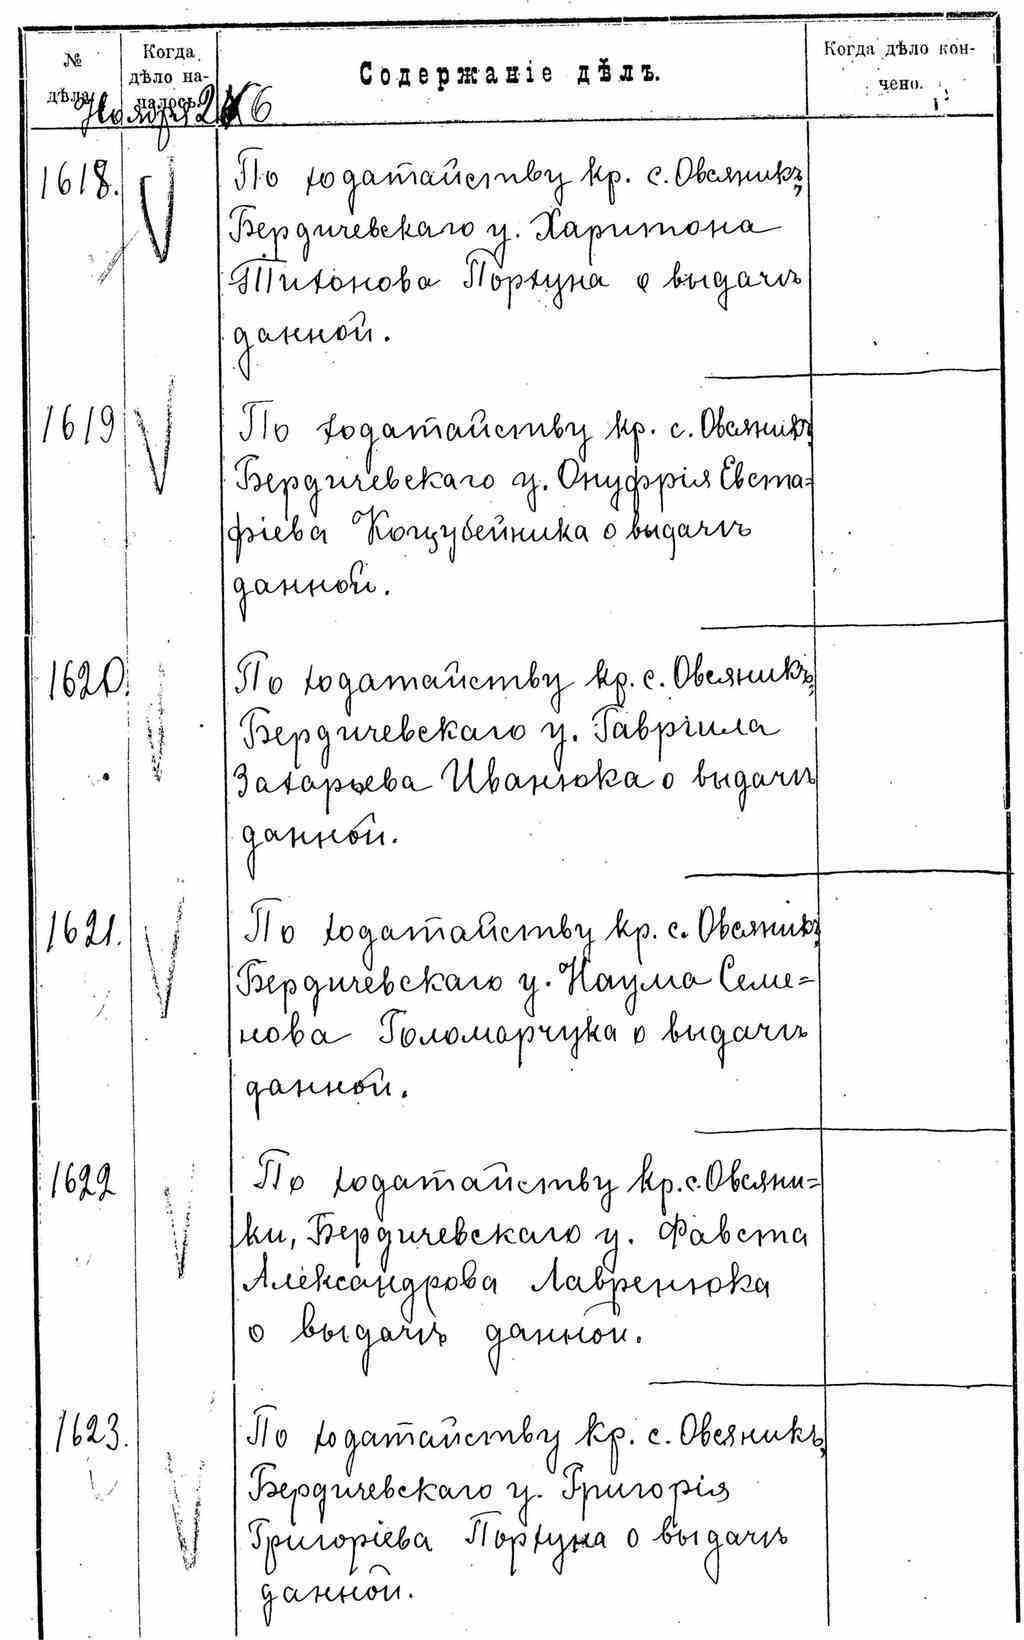 № дѣла.
Когда дѣло началось.
Содержаніе дѣлъ.
Когда дѣло кончено.
Ноября 26
1618.
По ходатайству кр. с. Овсяникъ,
Бердичевскаго у. Харитона
Тихонова Портуна о выдачѣ
данной.
1619
По ходатайству кр. с. Овсяникъ,
Бердичевскаго у. Онуфрія Евста=
фіева Коцубейника о выдачѣ
данной.
1620.
По ходатайству кр. с. Овсяникъ,
Бердичевскаго у. Гавріила
Захарьева Иванюка о выдачѣ
данной.
1621.
По ходатайству кр. с. Овсяникъ,
Бердичевскаго у. Наума Семе=
нова Голомарчука о выдачѣ
данной.
1622
По ходатайству кр. с. Овсяни=
ки, Бердичевскаго у. Фавста
Александрова Лавренюка
о выдачѣ данной.
1623.
По ходатайству кр. с. Овсяникъ,
Бердичевскаго у. Григорія
Григоріева Портуна о выдачѣ
данной.